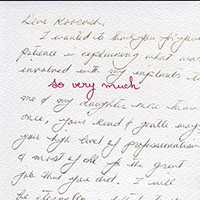 Dear
I wanted to thank you for your
patience in explaining what was
involved with my implants to
so very much
me & my daughter more than
once, your kind & gentle way,
your high level of professionalism
& most of all for the great
job that you did. I will
be